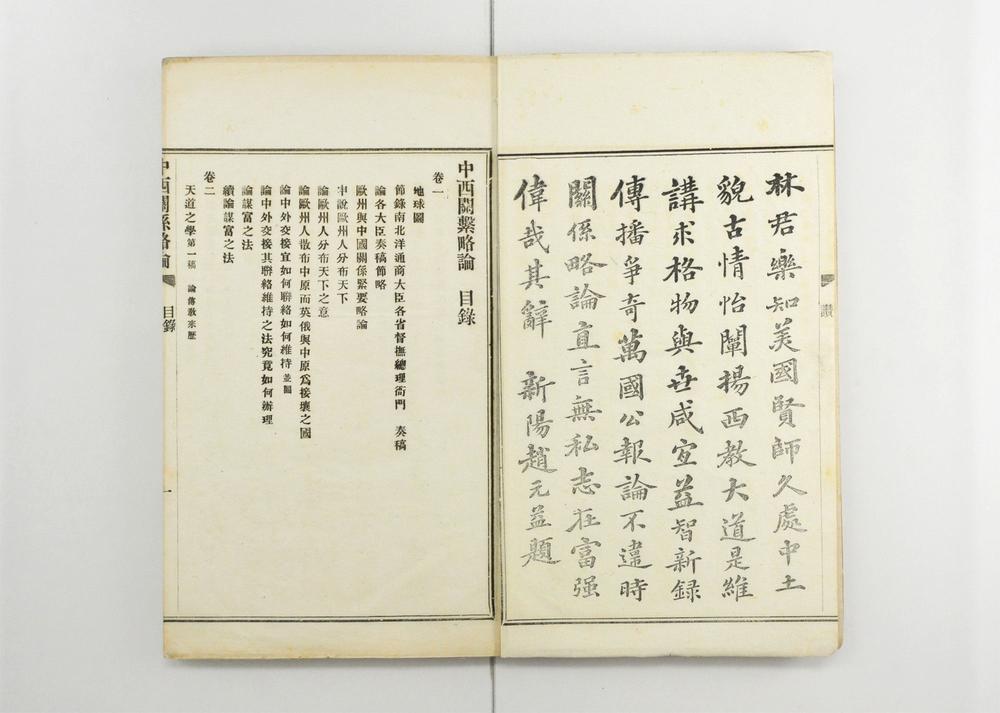 林君樂知美國賢師久處中土
貌古情怡闡揚西教大道是維
講求格物與世咸宜益智新録
傳播爭奇萬國公報論不違時
關係略論直言無私志在富强
偉哉其辭 新陽趙元益題
讚
中西關繫略論 目錄
卷一
地球圖
節錄南北洋通商大臣各省督撫總理衙門 奏稿
論各大臣奏稿節略
歐州與中國關係緊要略論
申說歐州人分布天下
論歐州人分布天下之意
論歐州人散布中原而英俄與中原為接壤之國
論中外交接宜如何聯絡如何維持並圖
論中外交接其聯絡維持之法究竟如何辦理
論謀富之法
續論謀富之法
卷二
天道之學第一稿 論傳教來歷
中西關係略論 目錄 一